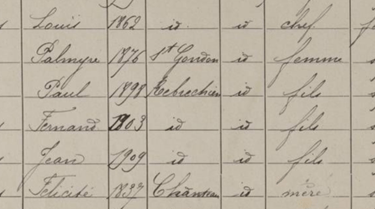 Louis 1862 id id chef
Palmyre 1876 St id femme
Paul 1898 id fils
Fernand 1903 id id fils
Jean 1909 id id fils
Félicité 1837 id mère